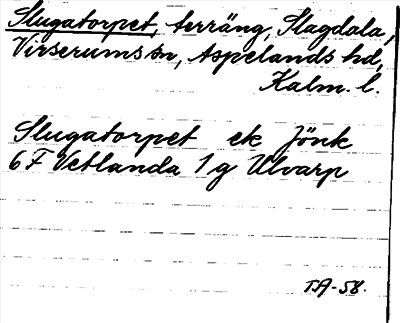 Slugatorpet, terräng, Slagdala,
Virserums sn, Aspelands hd,
Kalm. l.
Slugatorpet ek Jönk
6F Vetlanda 1g Ulvarp
TA-58.